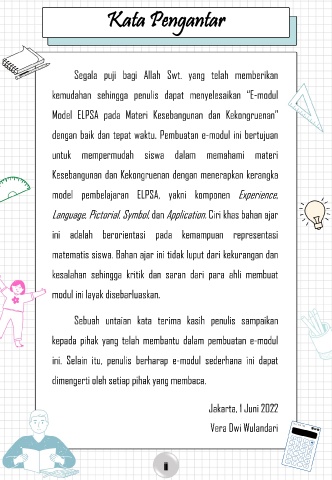 Kata Pengantar
Segala puji bagi Allah Swt. yang telah memberikan
kemudahan sehingga penulis dapat menyelesaikan "E-modul
Model ELPSA pada Materi Kesebangunan dan Kekongruenan"
dengan baik dan tepat waktu. Pembuatan e-modul ini bertujuan
untuk mempermudah siswa dalam memahami materi
Kesebangunan dan Kekongruenan dengan menerapkan kerangka
model pembelajaran ELPSA, yakni komponen Experience,
Language, Pictorial, Symbol, dan Application. Ciri khas bahan ajar
ini adalah berorientasi pada kemampuan representasi
matematis siswa. Bahan ajar ini tidak luput dari kekurangan dan
kesalahan sehingga kritik dan saran dari para ahli membuat
modul ini layak disebarluaskan.
Sebuah untaian kata terima kasih penulis sampaikan
kepada pihak yang telah membantu dalam pembuatan e-modul
ini. Selain itu, penulis berharap e-modul sederhana ini dapat
dimengerti oleh setiap pihak yang membaca.
Jakarta, 1 Juni 2022
Vera Dwi Wulandari